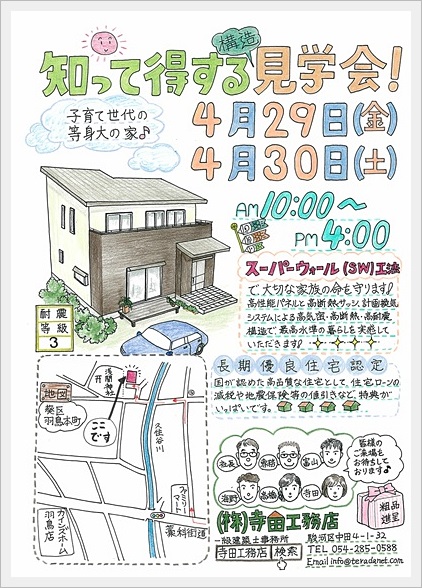 知って得する構造見学会!
子育て世代の
等身大の家♪
4月29日(金)
4月30日(土)
AM10:00〜
PM4:00
スーパーウォール(SW)工法
で大切な家族の命を守ります!
高性能パネルと高断熱サッシ、計画換気
システムによる高気密・高断熱・高耐震
構造で、最高水準の暮らしを実感して
いただきます!
耐震
等級
3
長期優良住宅認定
国が認めた高品質な住宅として、住宅ローンの
減税や地震保険等の値引きなど、特典が
いっぱいです。
地図
葵区
羽鳥本町
浅間神社
ここです
久住谷川
ファミリーマート
藁科街道
カインズホーム
羽鳥店
社長
富山
海野
高橋
寺田
皆様の
ご来場を
お待ちして
おります♪
粗品
進呈
(株)寺田工務店
一級建築士事務所
寺田工務店 検索
駿河区中田4-1-32
TEL 054-285-0588
Email info@teradanet.com